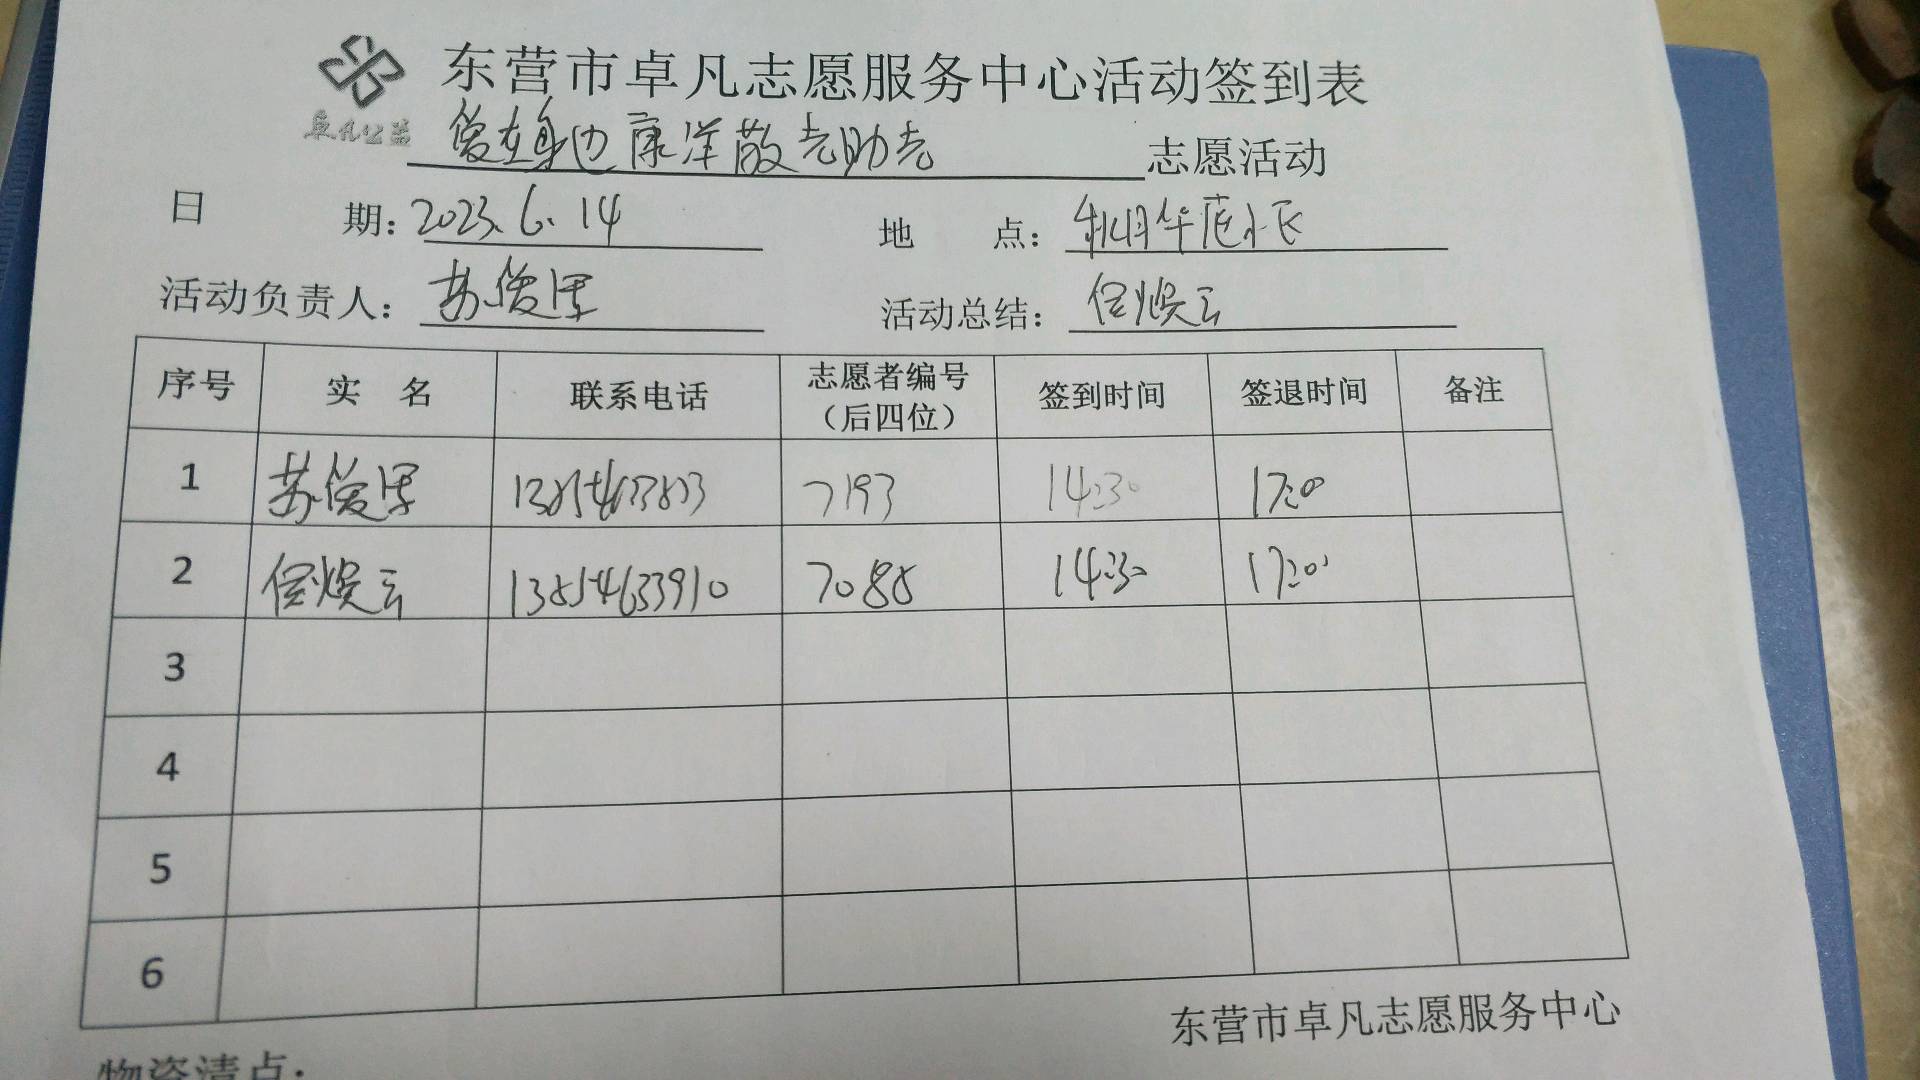 东营市卓凡志愿服务中心活动签到表
卓凡公益
爱在身边康洋敬老助老 志愿活动
日 期: 2023.6.14 地 点: 秋月华庭小区
活动负责人: 苏俊 活动总结: 云
序号 实 名 联系电话 志愿者编号（后四位） 签到时间 签退时间 备注
1 苏俊 7193 14:30 17:00
2 云 13854633910 7088 14:30 17:00
3
4
5
6
东营市卓凡志愿服务中心
物资清点: